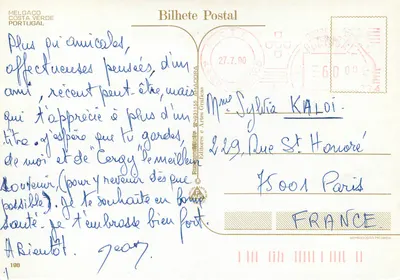 HELGACO
COSTA VERDE
PORTUGAL
Bilhete Postal
27.7.90
Plus qu'amicales,
affectueuses pensées, d'un
ami, récent peut être, mais
qui t'apprécie à plus d'un
titre. J'espère que tu gardes,
de moi et de "Cergy" le meilleur
souvenir, (pour y revenir dès que
possible). Je te souhaite en bonne
santé. Je t'embrasse bien fort.
A Bientôt. Jean
Mme Sylvia KALDI.
229, Rue St Honoré
75001 Paris
FRANCE
100